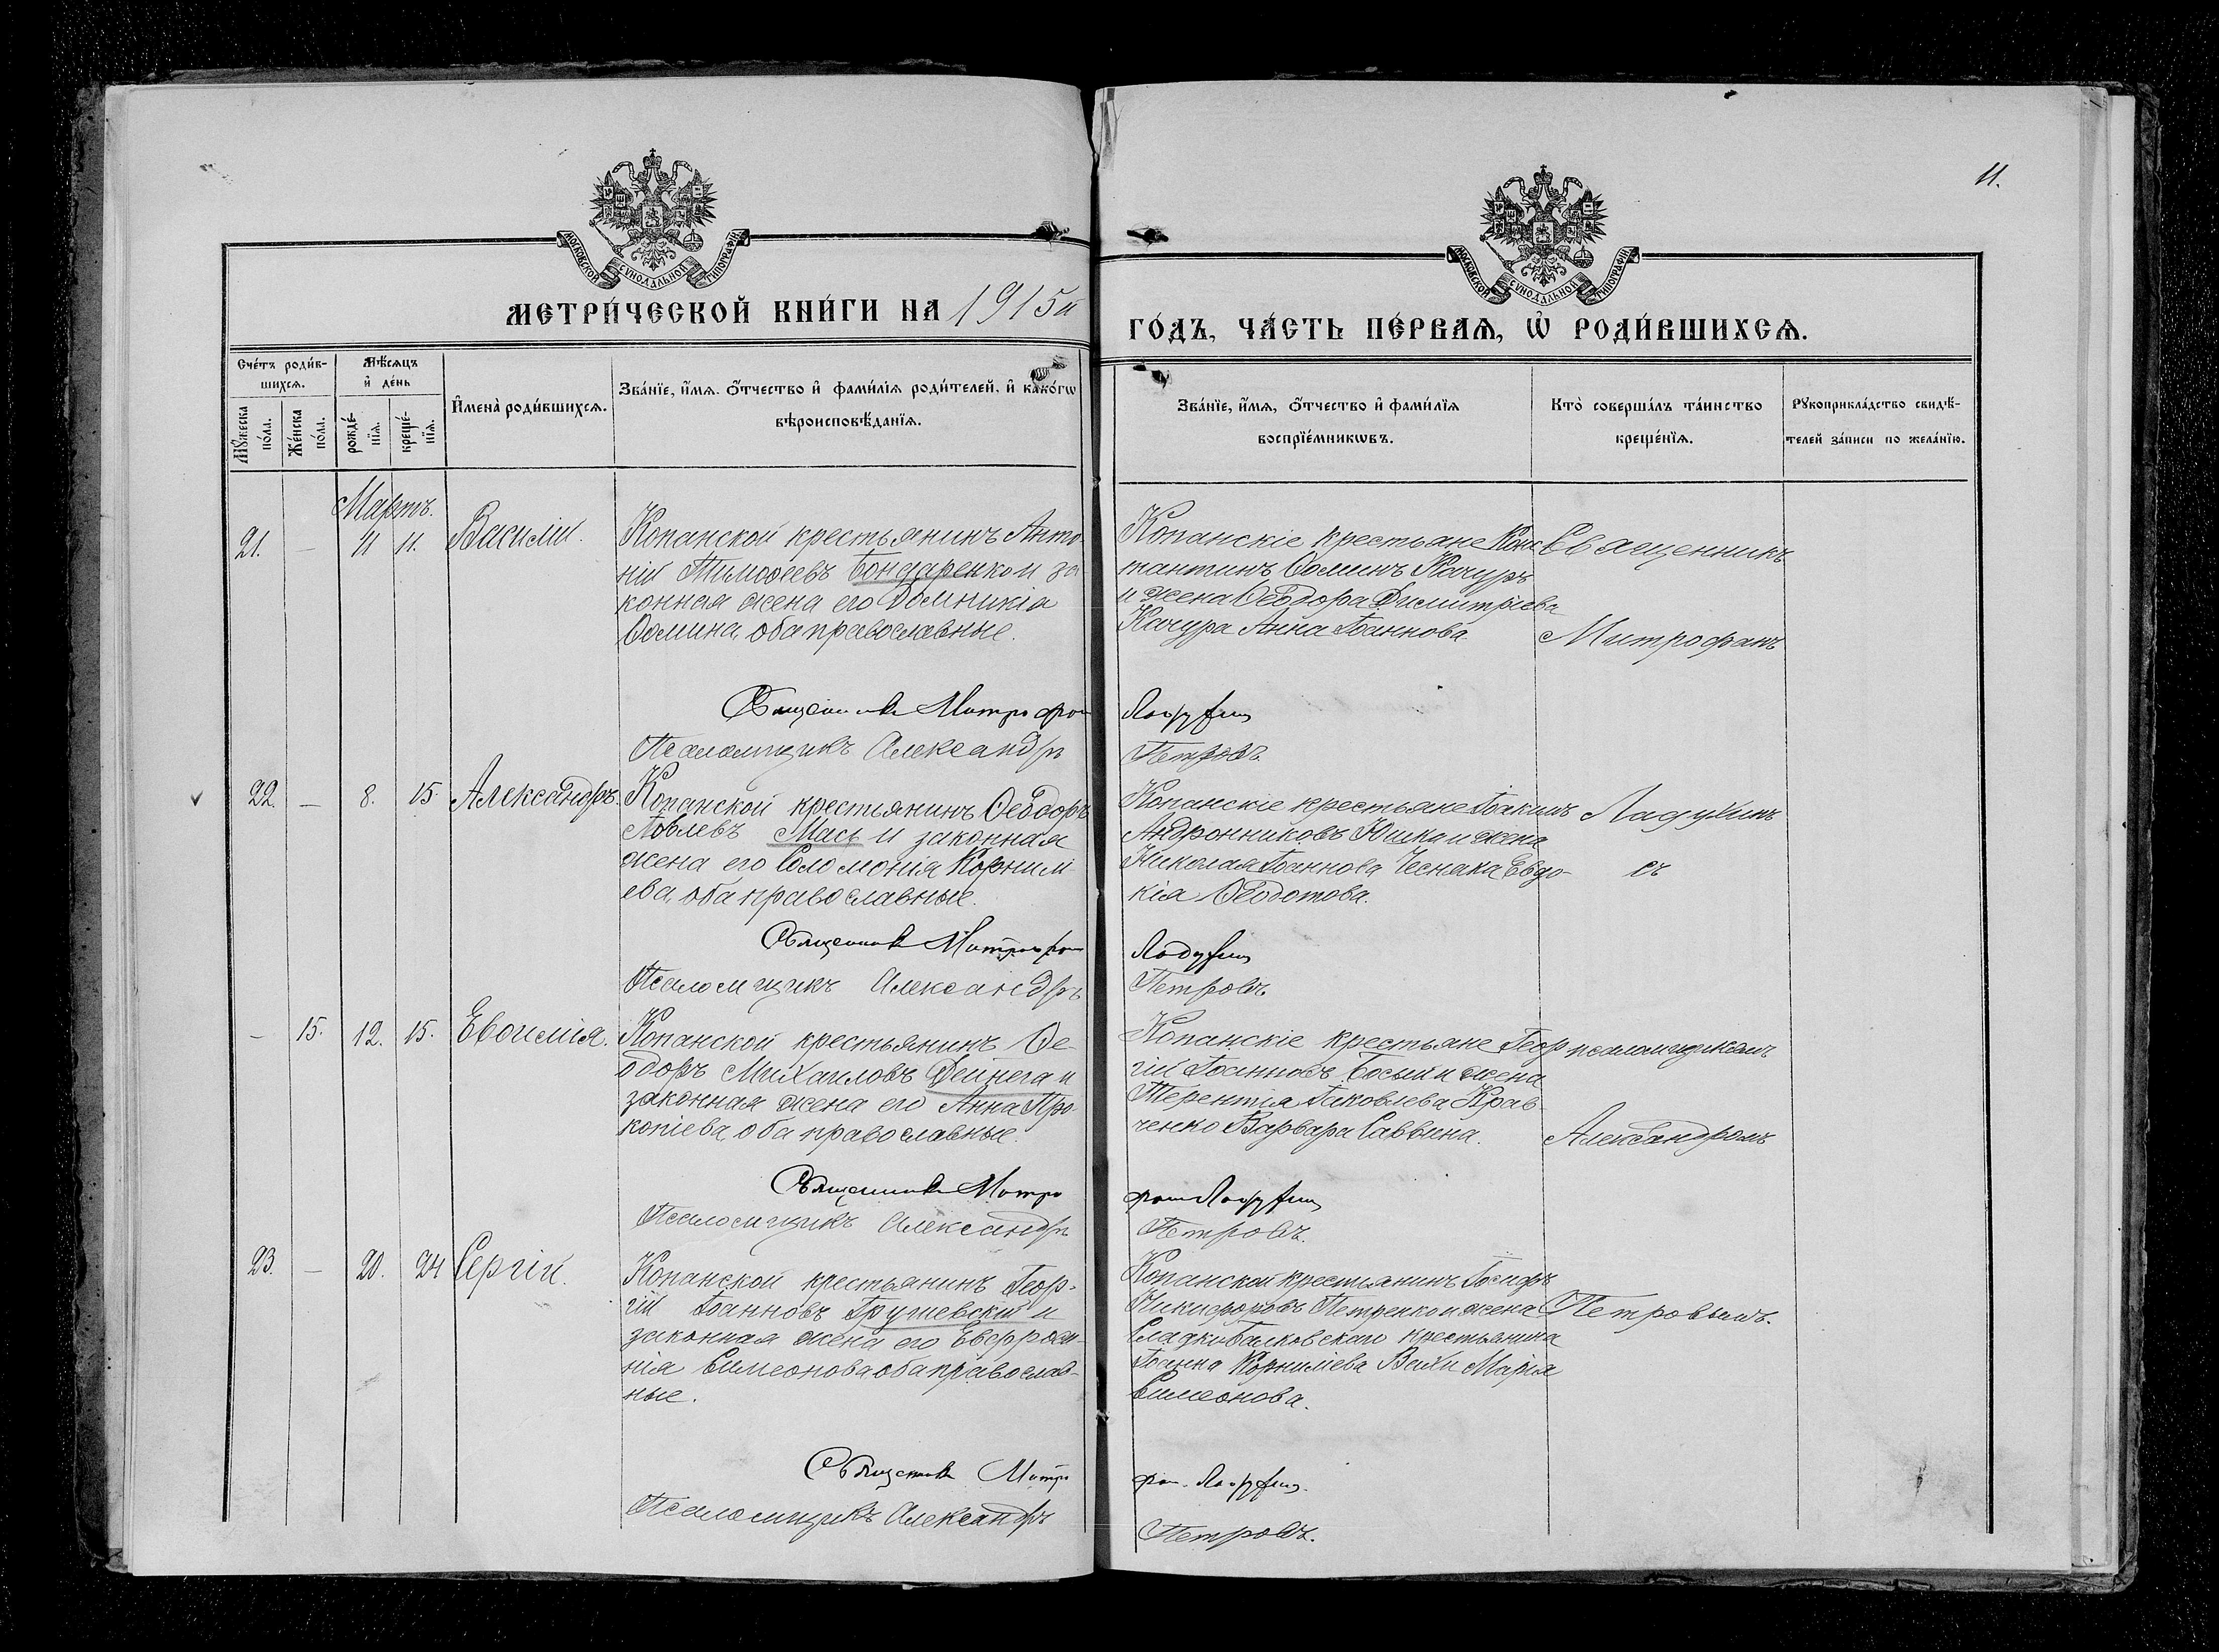 11.
МОСКОВСКОЙ СѴНОДАЛЬНОЙ ТИПОГРАФІИ
МОСКОВСКОЙ СѴНОДАЛЬНОЙ ТИПОГРАФІИ
МЕТРИ́ЧЕСКОЙ КНИ́ГИ НА 1915й
ГО́ДЪ, ЧА́СТЬ ПЕ́РВАѦ, Ѡ҆ РОДИ́ВШИХСѦ.
Сче́тъ роди́в-
шихсѧ.
Мѣ́сѧцъ
и҆ де́нь
Мꙋ́жеска
по́ла.
Же́нска
по́ла.
рожде́-
нїѧ.
креще́-
нїѧ.
И҆мена̀ роди́вшихсѧ.
Зва́нїе, и҆́мѧ, ѻ҆́тчество и҆ фами́лїѧ роди́телей, и҆ како́гѡ
вѣроисповѣ́данїѧ.
Зва́нїе, и҆́мѧ, ѻ҆́тчество и҆ фами́лїѧ
воспрїе́мникѡвъ.
Кто̀ соверша́лъ та́инство
креще́нїѧ.
Рꙋкоприкла́дство свидѣ́-
телей за́писи по жела́нїю.
Мартъ.
21. — 11 11. Василій.
Копанской крестьянинъ Анто
ній Тимоѳеевъ Бондаренко и за
конная жена его Домникія
Ѳомина, оба православные.
Копанскіе крестьяне Конс
тантинъ Ѳоминъ Качуръ
и жена Ѳеодора Димитріева
Качура Анна Іоаннова.
Священникъ
Митрофанъ
Священникъ Митрофан
Ладухин
Псаломщикъ Александръ
Петровъ.
22. — 8. 15 Александръ.
Копанской крестьянинъ Ѳеодоръ
Іовлевъ Мась и законная
жена его Соломонія Корнилі-
ева, оба православные.
Копанскіе крестьяне Іоакимъ
Андронниковъ Юшка и жена
Николая Іоаннова Чеснака Евдо-
кія Ѳеодотова.
Ладухинъ
съ
Священникъ Митрофан
Ладухин
Псаломщикъ Александръ
Петровъ.
— 15. 12. 15. Евѳимія.
Копанской крестьянинъ Ѳе-
одоръ Михаиловъ Дейнега и
законная жена его Анна Про-
копіева, оба православные.
Копанскіе крестьяне Геор
гій Іоанновъ Босый и жена
Терентія Іаковлева Крав-
ченко Варвара Саввина.
псаломщикомъ
Александромъ
Священникъ Митро
фан Ладухин
Псаломщикъ Александръ
Петровъ.
23. — 20. 24 Сергій.
Копанской крестьянинъ Геор-
гій Іоанновъ Грушевскій и
законная жена его Евфроси-
нія Симеонова, оба православ-
ные.
Копанской крестьянинъ Іосифъ
Никифоровъ Петренко и жена
Сладкобалковскаго крестьянина
Іоанна Корниліева Вахи Марія
Симеонова.
Петровымъ.
Священникъ Митро
фан. Ладухин.
Псаломщикъ Александръ
Петровъ.